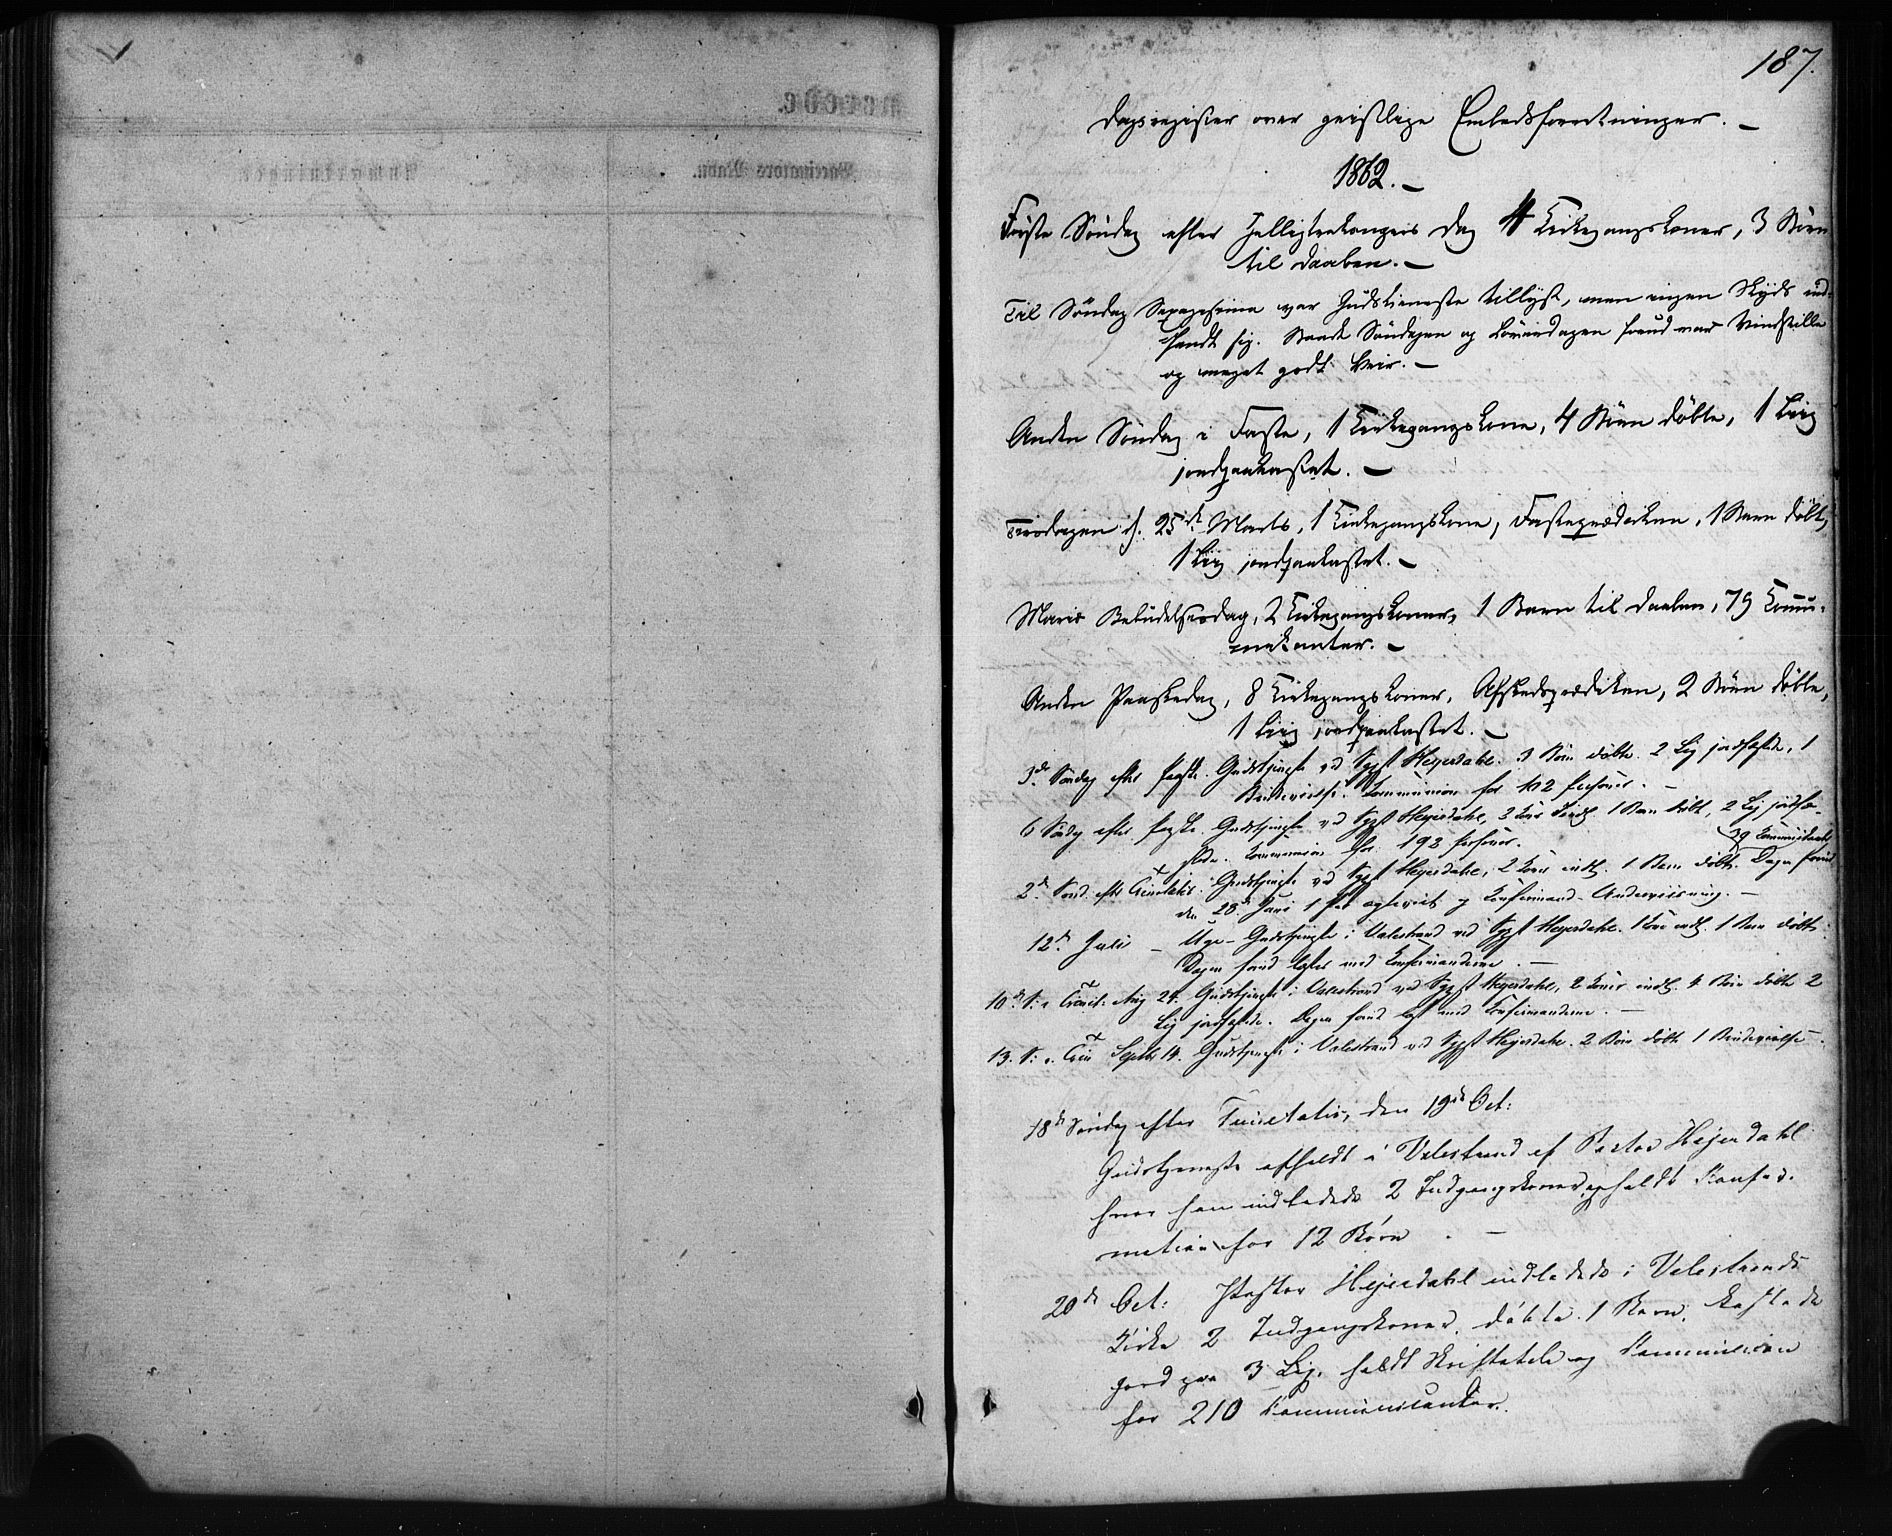 187.
Dagsregister over geistlige Embedsforretninger. –
1862. –
Første Søndag efter Helligtrekongers Dag 4 Kirkegangskoner, 3 Börn
til Daaben. –
Til Søndag Sexagesima var Gudstieneste tillyst, men ingen Skyds ind-
fandt sig. Baade Søndagen og Løverdagen forud var Vindstille
og meget godt Veir. –
Anden Søndag i Faste, 1 Kirkegangskone, 4 Börn döbte, 1 Liig
jordpaakastet. –
Tirsdagen d. 25de Marts, 1 Kirkegangskone, Fasteprædiken, 1 Barn döbt,
1 Liig jordpaakastet. –
Mariæ Bebudelsesdag, 2 Kirkegangskoner, 1 Barn til Daaben, 79 Commu-
nikanter. –
Anden Paaskedag, 8 Kirkegangskoner, Afskedsprædiken, 2 Börn döbte,
1 Liig jordpaakastet. –
3de Søndag efter Paaske. Gudstjeneste ved Sgpst Hejerdahl. 3 Börn döbte. 2 Lig jordfæstede, 1
Brudevielse. Communion for 102 Personer. –
6 Søndag efter Paaske. Gudstjeneste ved Sgpst Hejerdahl, 3 Koner indl. 1 Barn döbt, 2 Lig jordfæ-
stede. Communion for 192 Personer.
39 Communicanter
2de Sønd. efter Trinitatis. Gudstjeneste ved Sgpst Hejerdahl, 2 Koner indl. 1 Barn döbt. Dagen forud
den 28 Juni 1 Par ægteviet og Confirmand-Underviisning. –
12te Juli – Uge-Gudstjeneste i Valestrand ved Sgpst Hejerdahl. 1 Kone indl. 1 Barn döbt.
Dagen forud læst med Confirmanderne. –
10de S. e. Trinit: Aug 24. Gudstjeneste i Valestrand ved Sgpst Hejerdahl, 2 Koner indl. 4 Börn döbte 2
Lig jordfæstede. Dagen forud læst med Confirmanderne. –
13. S. e. Trin Septbr 14. Gudstjeneste i Valestrand ved Sgpst Hejerdahl. 2 Börn döbte 1 Brudevielse –
18de Søndag efter Trinitatis, den 19de Oct:
Gudstjeneste afholdt i Valestrand af Pastor Hejerdahl
hvor han indledede 2 Indgangskoner, og holdt Konfir-
mation for 12 Børn. –
20de Oct: Pastor Hejerdahl indledede i Valestrands
Kirke 2 Indgangskoner, döbte 1 Barn, kastede
Jord paa 3 Lig, holdt Skriftetale og Communion
for 210 Communicanter.